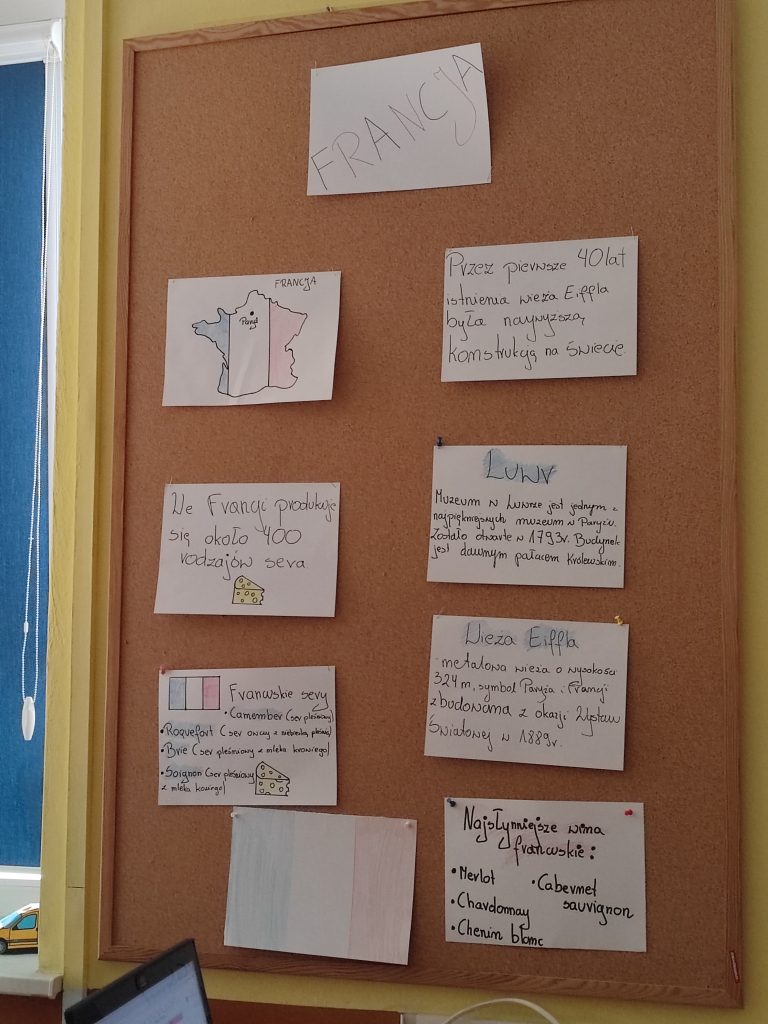 FRANCJA
FRANCJA
Paryż
Przez pierwsze 40 lat
istnienia wieża Eiffla
była najwyższą
konstrukcją na świecie.
We Francji produkuje
się około 400
rodzajów sera
Luwr
Muzeum w Luwrze jest jednym z
najpiękniejszych muzeum w Paryżu.
Zostało otwarte w 1793r. Budynek
jest dawnym pałacem Królewskim.
Wieża Eiffla
-metalowa wieża o wysokości
324 m, symbol Paryża i Francji
zbudowana z okazji Wystawy
Światowej w 1889r.
Francuskie sery
•Camember (ser pleśniowy)
•Roquefort (ser owczy z niebieską pleśnią)
•Brie (ser pleśniowy z mleka krowiego)
•Soignon (ser pleśniowy
z mleka koziego)
Najsłynniejsze wina
francuskie:
•Merlot
•Chardonnay
•Chenin blanc
•Cabernet
sauvignon